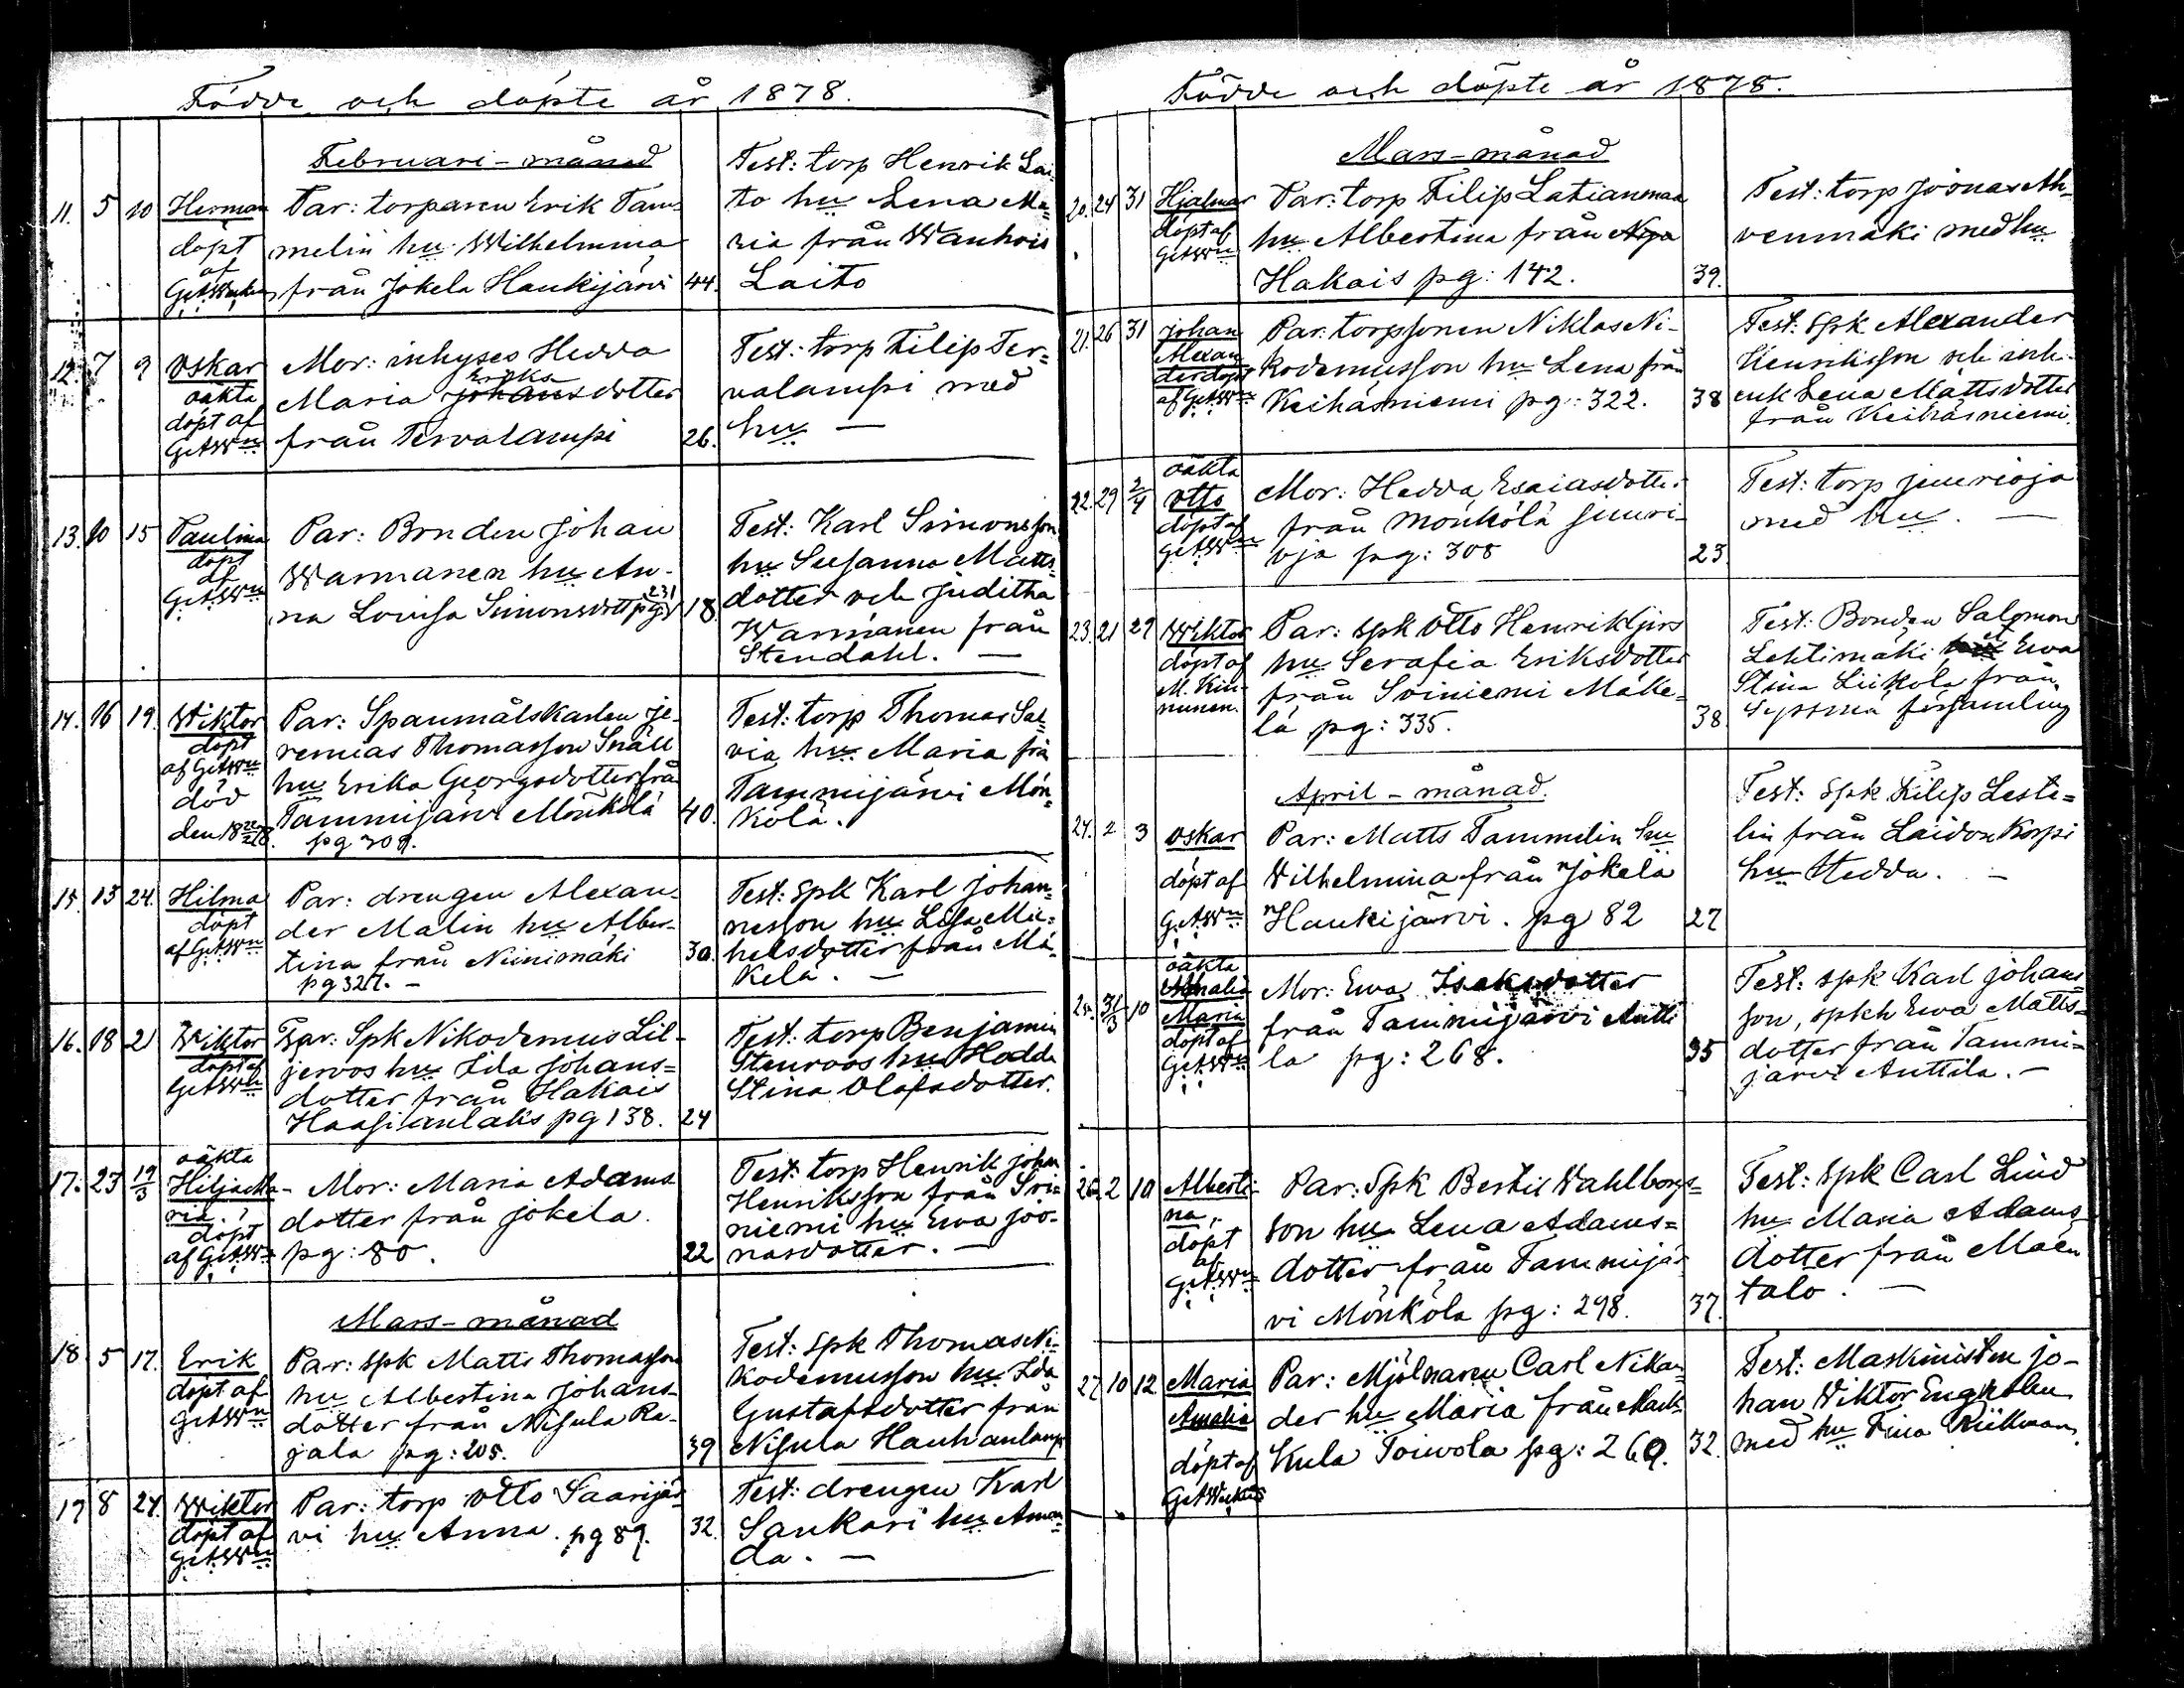 Födde och döpte år 1878.
Februari-månad
11. 5 10 Herman döpt af
Par: torparen Erik Tam-
melin hu Wilhelmina
från Jokela Haukijärvi 44.
Test: torp Henrik Lai-
to hu Lena Ma-
ria från Wanhois
Laito
12. 7 9 Oskar oäkta döpt af GAWn
Mor: inhyses Hedda
Maria Eriks johansdotter
från Tervalampi 26.
Test: torp Filip Ter-
valampi med
hu —
13. 10 15 Paulina döpt af GAWn
Par: Bonden Johan
Warmanen hu An-
na Lovisa Simonsdott pg 231 18.
Test: Karl Simonsson
hu Susanna Matts-
dotter och Juditha
Warmanen från
Stendahl. —
14. 16 19. Wiktor döpt af GAWn död den
Par: Spanmålskarlen Je-
remias Thomasson Snäll
hu Erika Georgsdotter frå
Tammijärvi Mönkölä 40.
pg 309.
Test: torp Thomas
via hu Maria frå
Tammijärvi Mön-
kölä.
15. 13 24. Hilma döpt af GAWn
Par: drengen Alexan-
der Malin hu Alber-
tina från Niinimäki 30.
pg 327. —
Test: spk Karl Johan-
nesson hu Lisa Mic-
helsdotter från Mä-
kelä. —
16. 18 21 Wiktor döpt af GAWn
Par: Spk Nikodemus Lil-
jeroos hu Ida Johans-
dotter från Hakais
Haasianlaks pg 138. 24
Test: torp Benjamin
Stenroos hu Hedda
Stina Olofsdotter.
17. 23 19/3 oäkta Hilja Ma-
ria. döpt af GAWn
Mor: Maria Adams
dotter från Jokela.
pg: 80. 22
Test: torp Henrik Johan
Henriksson från Svi-
niemi hu Ewa Joo-
nasdotter. —
Mars-månad
18 5 17. Erik döpt af GAWn
Par: spk Matts Thomasson
hu Albertina Johans-
dotter från Nisula Ra-
jala pg: 205. 39
Test: spk Thomas Ni-
kodemusson hu Ida
Gustafsdotter från
Nisula Hauhanlamp
19 8 24. Wiktor döpt af GAWn
Par: torp Otto Saarijär-
vi hu Anna. pg 89. 32.
Test: drengen Karl
Sankari hu Aman-
da. —
Födde och döpte år 1878.
Mars-månad
20. 24 31 Hjalmar döpt af GAWn
Par: torp Filip Latianmaa
hu Albertina från Nya
Hakais pg: 142. 39.
Test: torp Joonas Ah-
venmäki med hu
21. 26 31 Johan Alexan
der döpt af GAWn
Par: torpsonen Niklas Ni-
kodemusson hu Lena från
Keihäsniemi pg: 322. 38
Test: spk Alexander
Henriksson och inh.
enk Lena Mattsdotter
från Keihäsniemi.
22. 29 2/4 oäkta Otto döpt af GAWn
Mor: Hedda Esaiasdotter
från Mönkölä Juuri-
oja pg: 308 23
Test: torp Juurioja
med hu. —
23. 21 27 Wiktor döpt af M. Kin-
nunen.
Par: spk Otto Henrik
hu Serafia Eriksdotter
från Sviniemi Mäke-
lä pg: 335. 38
Test: Bonden Salomon
Lehtimäki Ewa
Stina Liikola från
Sysmä församling
April-månad.
24. 2 3 Oskar döpt af GAWn
Par: Matts Tammelin hu
Wilhelmina från Jokela
Haukijärvi. pg 82 27
Test: spk Filip Leste-
lin från Laidonkorpi
hu Hedda. —
25. 31/3 10 oäkta Amalia
Maria döpt af GAWn
Mor: Ewa Isaksdotter
från Tammijärvi Antti
la pg: 268. 35
Test: spk Karl Johans-
son, spkh Ewa Matts-
dotter från Tammi-
järvi Anttila. —
26. 2 10 Alberti-
na, döpt af GAWn
Par: Spk Bertil Wahlbergs-
son hu Lena Adams-
dotter från Tammijär
vi Mönkölä pg: 298. 37.
Test: spk Carl Lind
hu Maria Adams-
dotter från Mäen
talo. —
27 10 12 Maria
Amalia döpt af
Par: Mjölnaren Carl Nikan-
der hu Maria från
kula Toivola pg: 269. 32.
Test: Maskinisten Jo-
han Wiktor
med hu